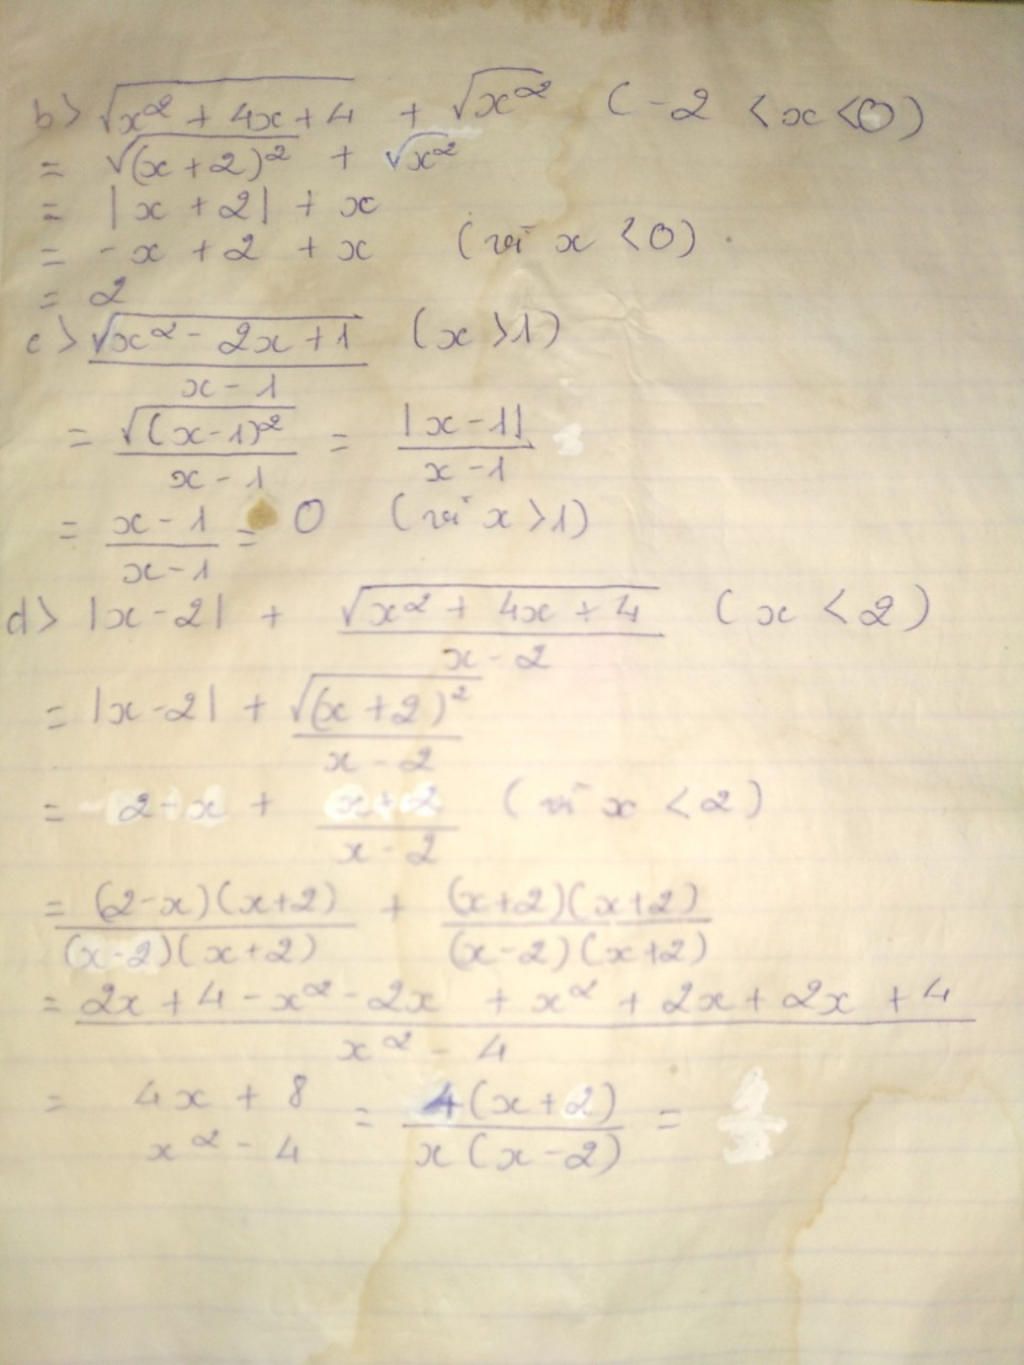 b> √(x² + 4x + 4) + √x² ( -2 < x < 0)
= √(x + 2)² + √x²
= |x + 2| + x
= -x + 2 + x (vì x < 0).
= 2
c> √(x² - 2x + 1) / (x - 1) (x > 1)
= √(x-1)² / (x - 1) = |x - 1| / (x - 1)
= (x - 1) / (x - 1) = 0 (vì x > 1)
d> |x - 2| + √(x² + 4x + 4) / (x - 2) (x < 2)
= |x - 2| + √(x + 2)² / (x - 2)
= 2 - x + (x + 2) / (x - 2) (vì x < 2)
= (2-x)(x+2) / (x-2)(x+2) + (x+2)(x+2) / (x-2)(x+2)
= (2x + 4 - x² - 2x + x² + 2x + 2x + 4) / (x² - 4)
= (4x + 8) / (x² - 4) = 4(x+2) / x(x-2) =